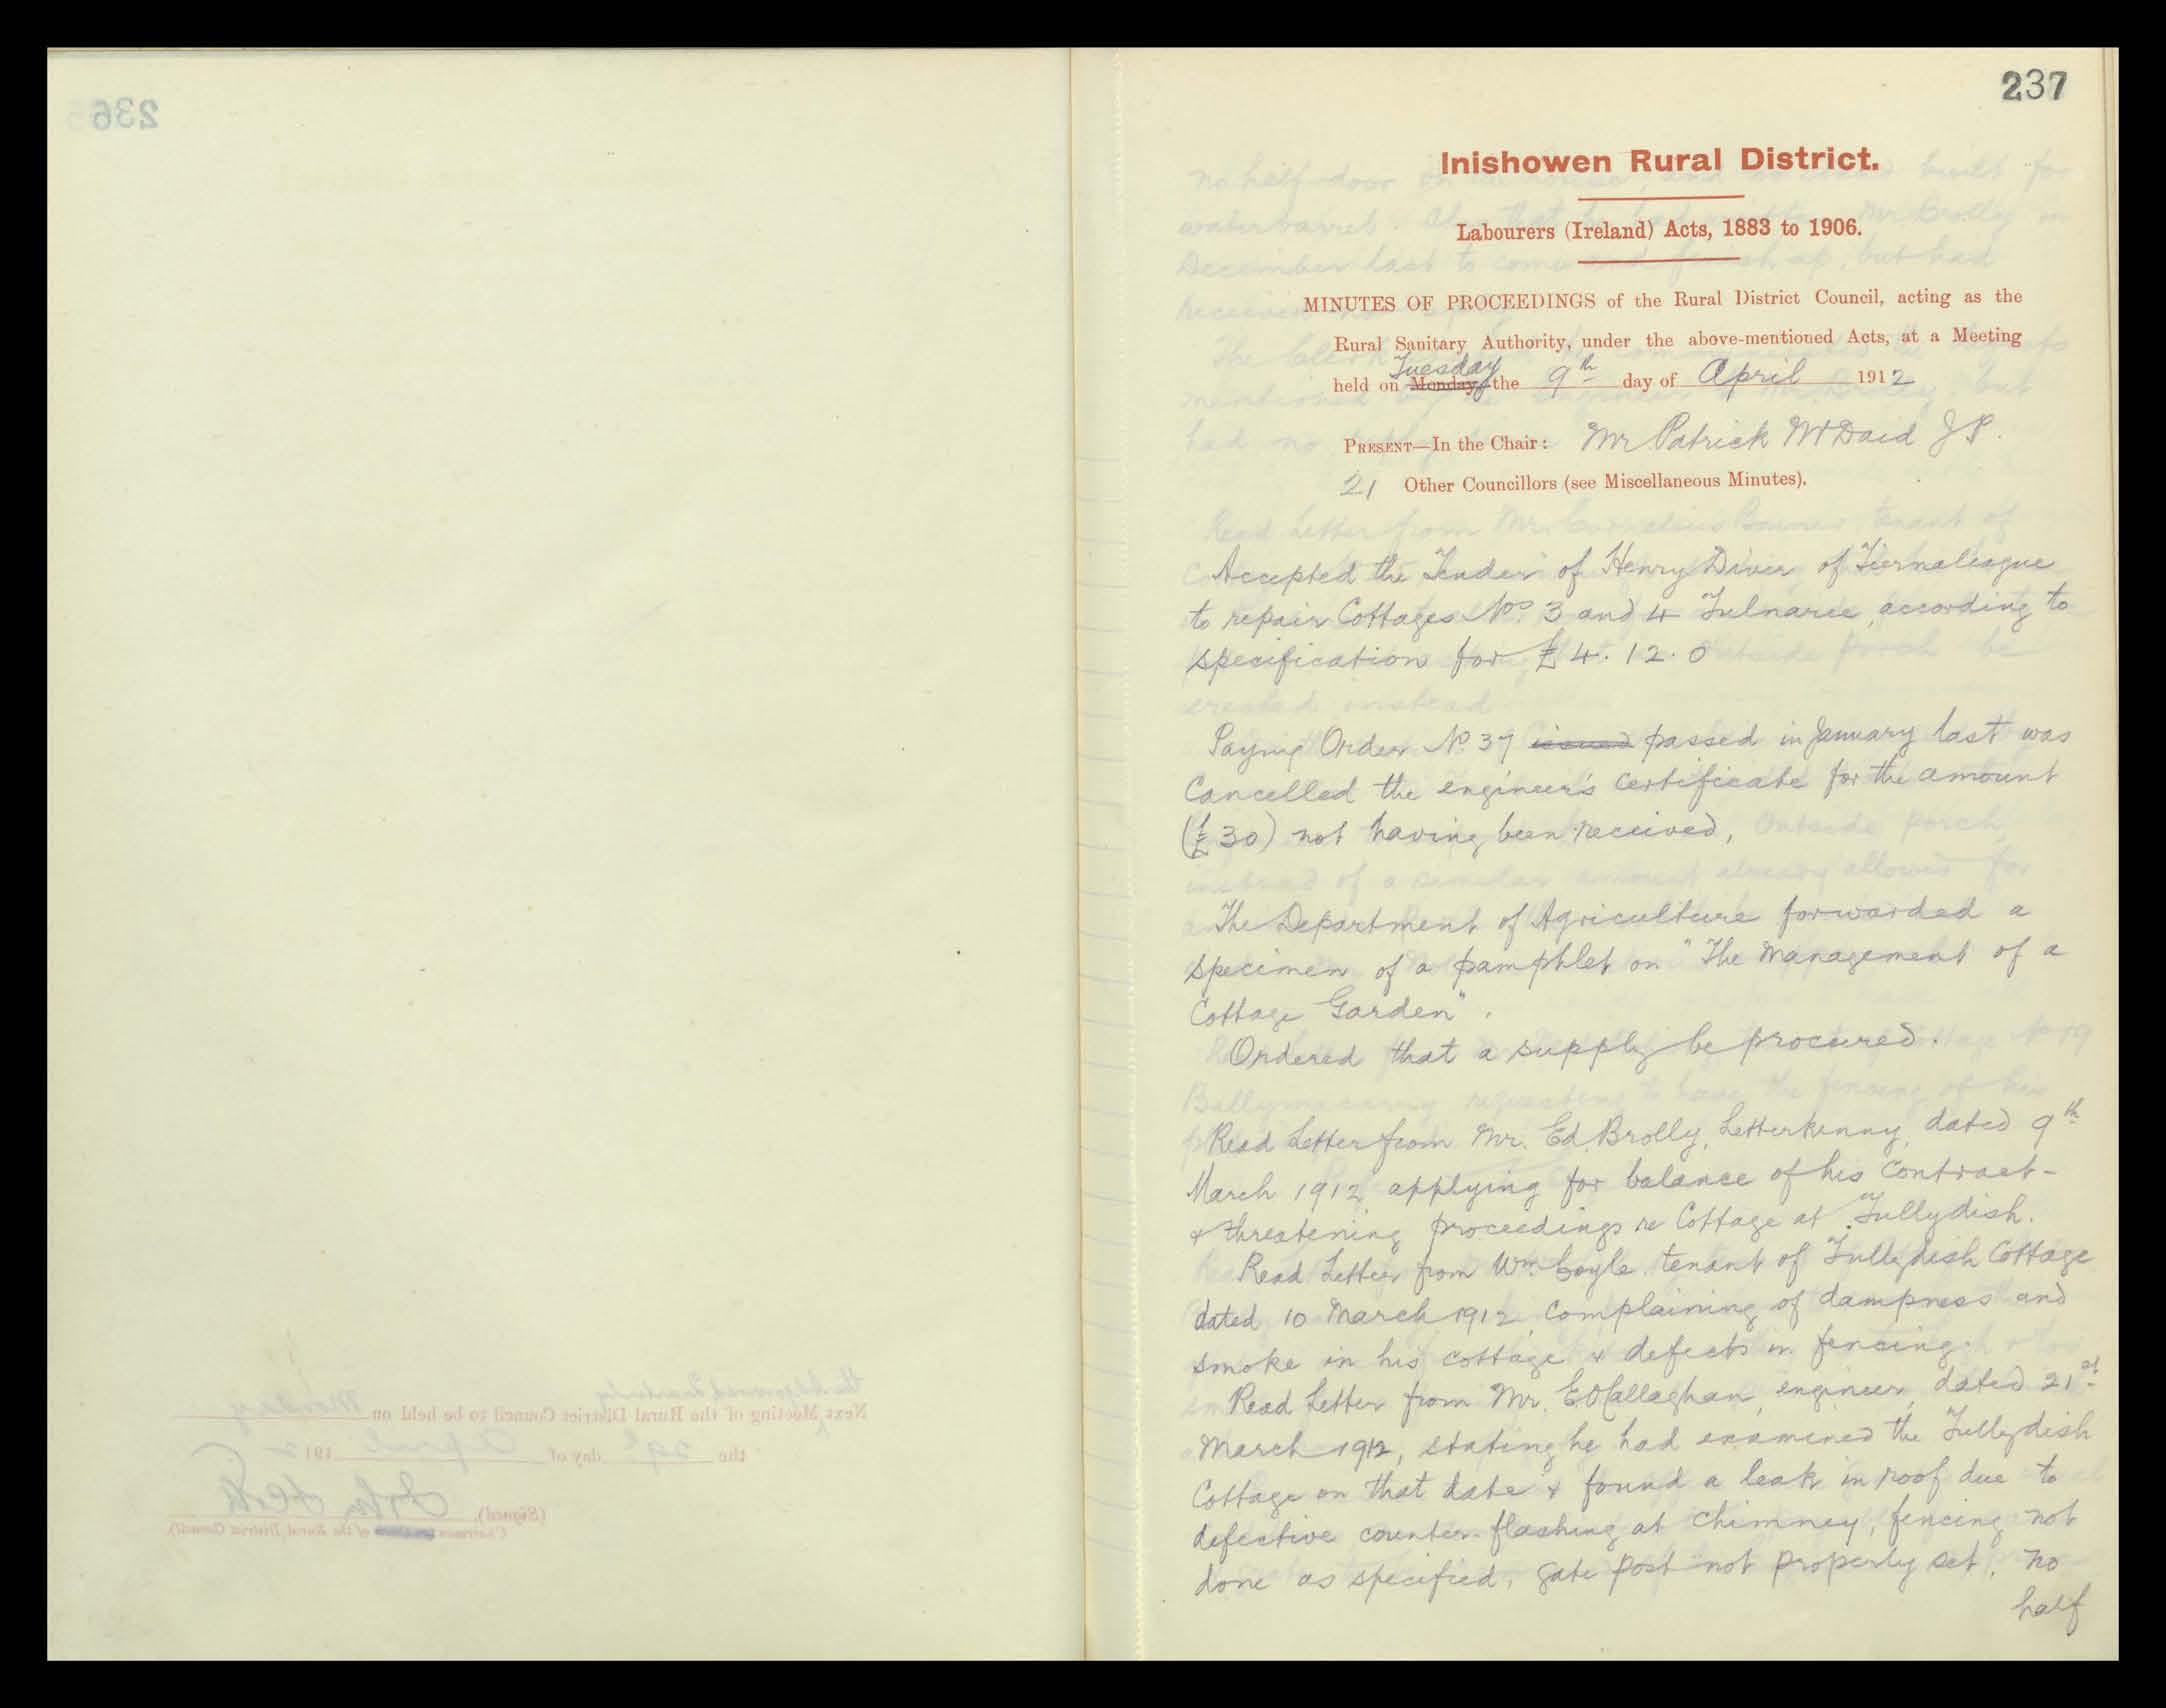 237
Inishowen Rural District.
Labourers (Ireland) Acts, 1883 to 1906.
MINUTES OF PROCEEDINGS of the Rural District Council, acting as the
Rural Sanitary Authority, under the above-mentioned Acts, at a Meeting
Tuesday
held on Monday, the 9th day of April 1912
PRESENT—In the Chair: Mr Patrick McDaid J P.
21 Other Councillors (see Miscellaneous Minutes).
Accepted the Tender of Henry Diver of Tiernaleague
to repair Cottages Nos. 3 and 4 Tulnaree, according to
specification for £4. 12. 0
Paying Order No. 37 issued passed in January last was
Cancelled the engineer's certificate for the amount
(£30) not having been received,
The Department of Agriculture forwarded a
specimen of a pamphlet on "The Management of a
Cottage Garden".
Ordered that a supply be procured.
Read Letter from Mr. Ed. Brolly, Letterkenny, dated 9th
March 1912, applying for balance of his Contract-
& threatening proceedings re Cottage at Tullydish.
Read Letter from Wm. Coyle, tenant of Tullydish Cottage
dated 10 March 1912, Complaining of dampness and
smoke in his cottage & defects in fencing.
Read Letter from Mr. E. O'Callaghan, engineer, dated 21st
March 1912, stating he had examined the Tullydish
Cottage on that date & found a leak in roof due to
defective counter-flashing at Chimney, fencing not
done as specified, gate post not properly set, no
half